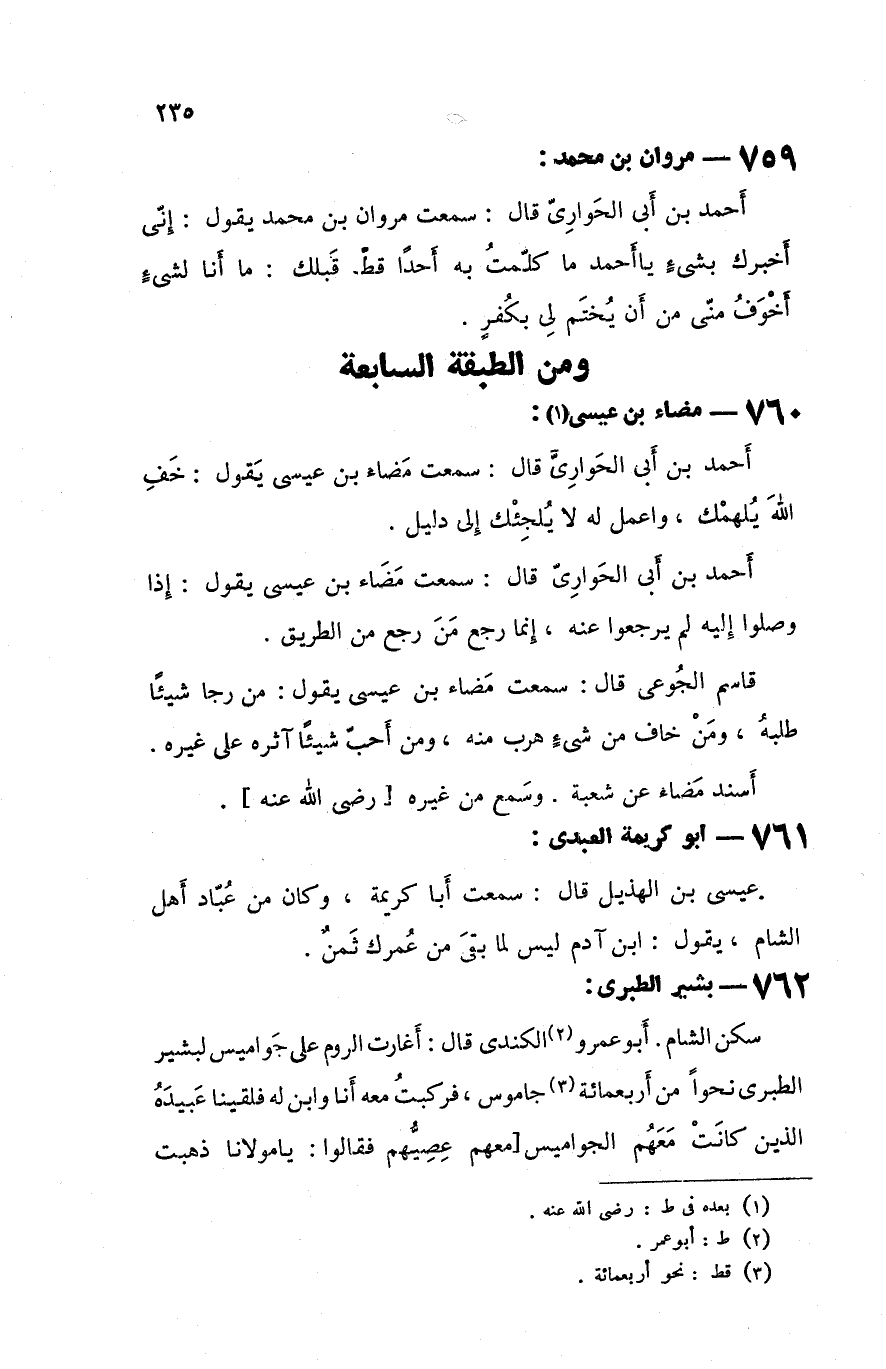 ٢٣٥
٧٥٩ — مروان بن محمد :
أَحمد بن أَبى الحَوارِىّ قال : سمعت مروان بن محمد يقول : إِنّى
أَخبرك بشىءٍ ياأَحمد ما كلّمتُ به أَحدًا قطّ. قَبلك : ما أَنا لشىءٍ
أَخْوَفُ منّى من أَن يُختَم لى بكُفرٍ .
ومن الطبقة السابعة
٧٦٠ — مضاء بن عيسى(١) :
أَحمد بن أَبى الحَوارِىَّ قال : سمعت مَضاء بن عيسى يَقول : خَفِ
اللهَ يُلهمْك ، واعمل له لا يُلجِئْك إِلى دليل .
أَحمد بن أَبى الحَوارِىّ قال : سمعت مَضَاء بن عيسى يقول : إِذا
وصلوا إِليه لم يرجعوا عنه ، إِنما رجع مَنَ رجع من الطريق .
قاسم الجُوعى قال : سمعت مَضاء بن عيسى يقول : من رجا شيئًا
طلبهُ ، ومَنْ خاف من شىءٍ هرب منه ، ومن أَحبّ شيئًا آثره على غيره .
أَسند مَضاء عن شعبة . وسَمع من غيره [ رضى الله عنه ] .
٧٦١ — ابو كريمة العبدى :
عيسى بن الهذيل قال : سمعت أَبا كريمة ، وكان من عُبّاد أَهل
الشام ، يقول : ابن آدم ليس لما بقىَ من عُمرك ثَمنٌ .
٧٦٢ — بشير الطبرى :
سكن الشام . أَبو عمرو(٢) الكندى قال : أَغارت الروم على جَواميس لبشير
الطبرى نحواً من أَربعمائة(٣) جاموس ، فركبتُ معه أَنا وابن له فلقينا عَبيدَهُ
الذين كانَتْ مَعَهُم الجواميس [معهم عِصِيُّهم فقالوا : يامولانا ذهبت
(١) بعده فى ط : رضى الله عنه .
(٢) ط : أبوعمر .
(٣) قط : نحو أربعمائة .